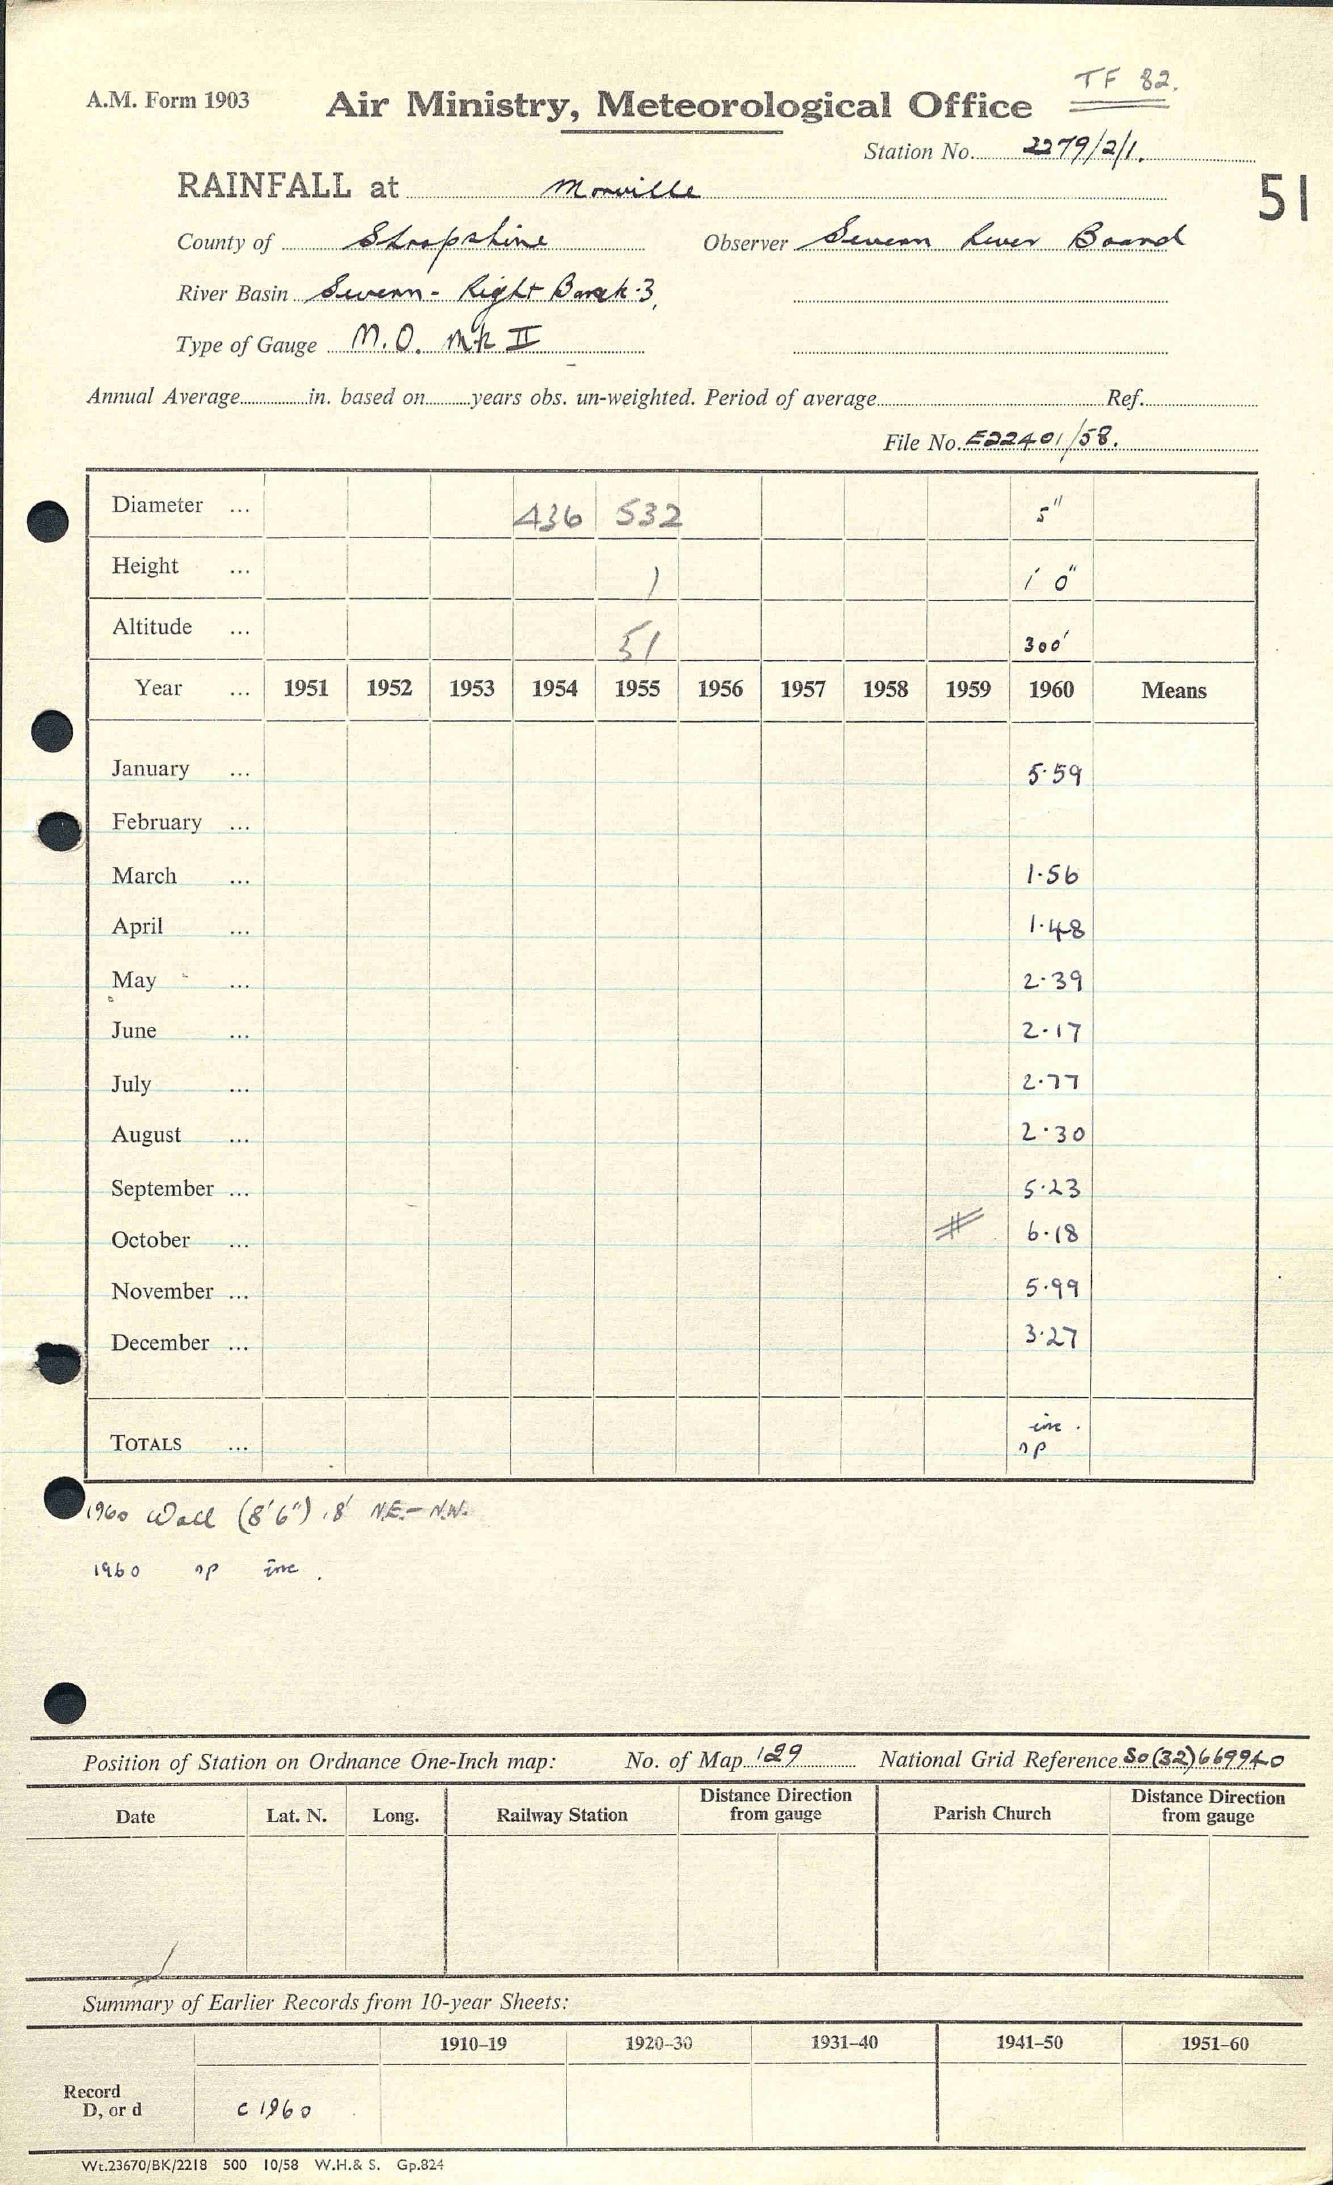 TF 82.
A.M. Form 1903 Air Ministry, Meteorological Office
Station No. 2279/2/1.
51
RAINFALL at Morville
County of Shropshire Observer Severn River Board
River Basin Severn - Right Bank 3,
Type of Gauge M.O. Mk II
Annual Average in. based on years obs. un-weighted. Period of average Ref.
File No. E22401/58.
Diameter ... 436 532 5"
Height ... 1 1' 0"
Altitude ... 51 300'
Year ... 1951 1952 1953 1954 1955 1956 1957 1958 1959 1960 Means
January ... 5.59
February ...
March ... 1.56
April ... 1.48
May ... 2.39
June ... 2.17
July ... 2.77
August ... 2.30
September ... 5.23
October ... 6.18
November ... 5.99
December ... 3.27
TOTALS ... inc.
np
1960 Wall (8'6") 18' N.E.- N.W.
1960 np inc.
Position of Station on Ordnance One-Inch map: No. of Map 129 National Grid Reference SO(32)669940
Date Lat. N. Long. Railway Station Distance Direction from gauge Parish Church Distance Direction from gauge
Summary of Earlier Records from 10-year Sheets:
1910–19 1920–30 1931–40 1941–50 1951–60
Record
D, or d c 1960
Wt.23670/BK/2218 500 10/58 W.H.& S. Gp.824